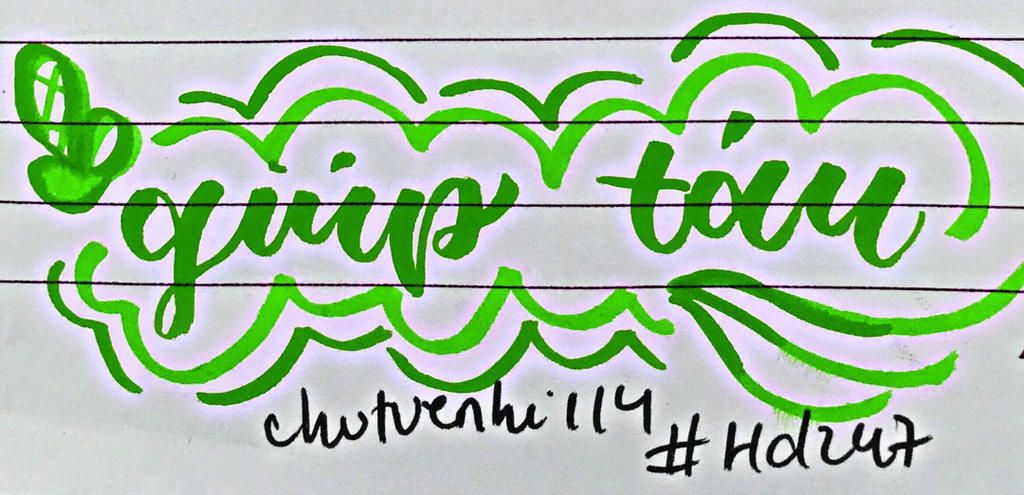 giúp táu
chutvenhi114
#Hd247